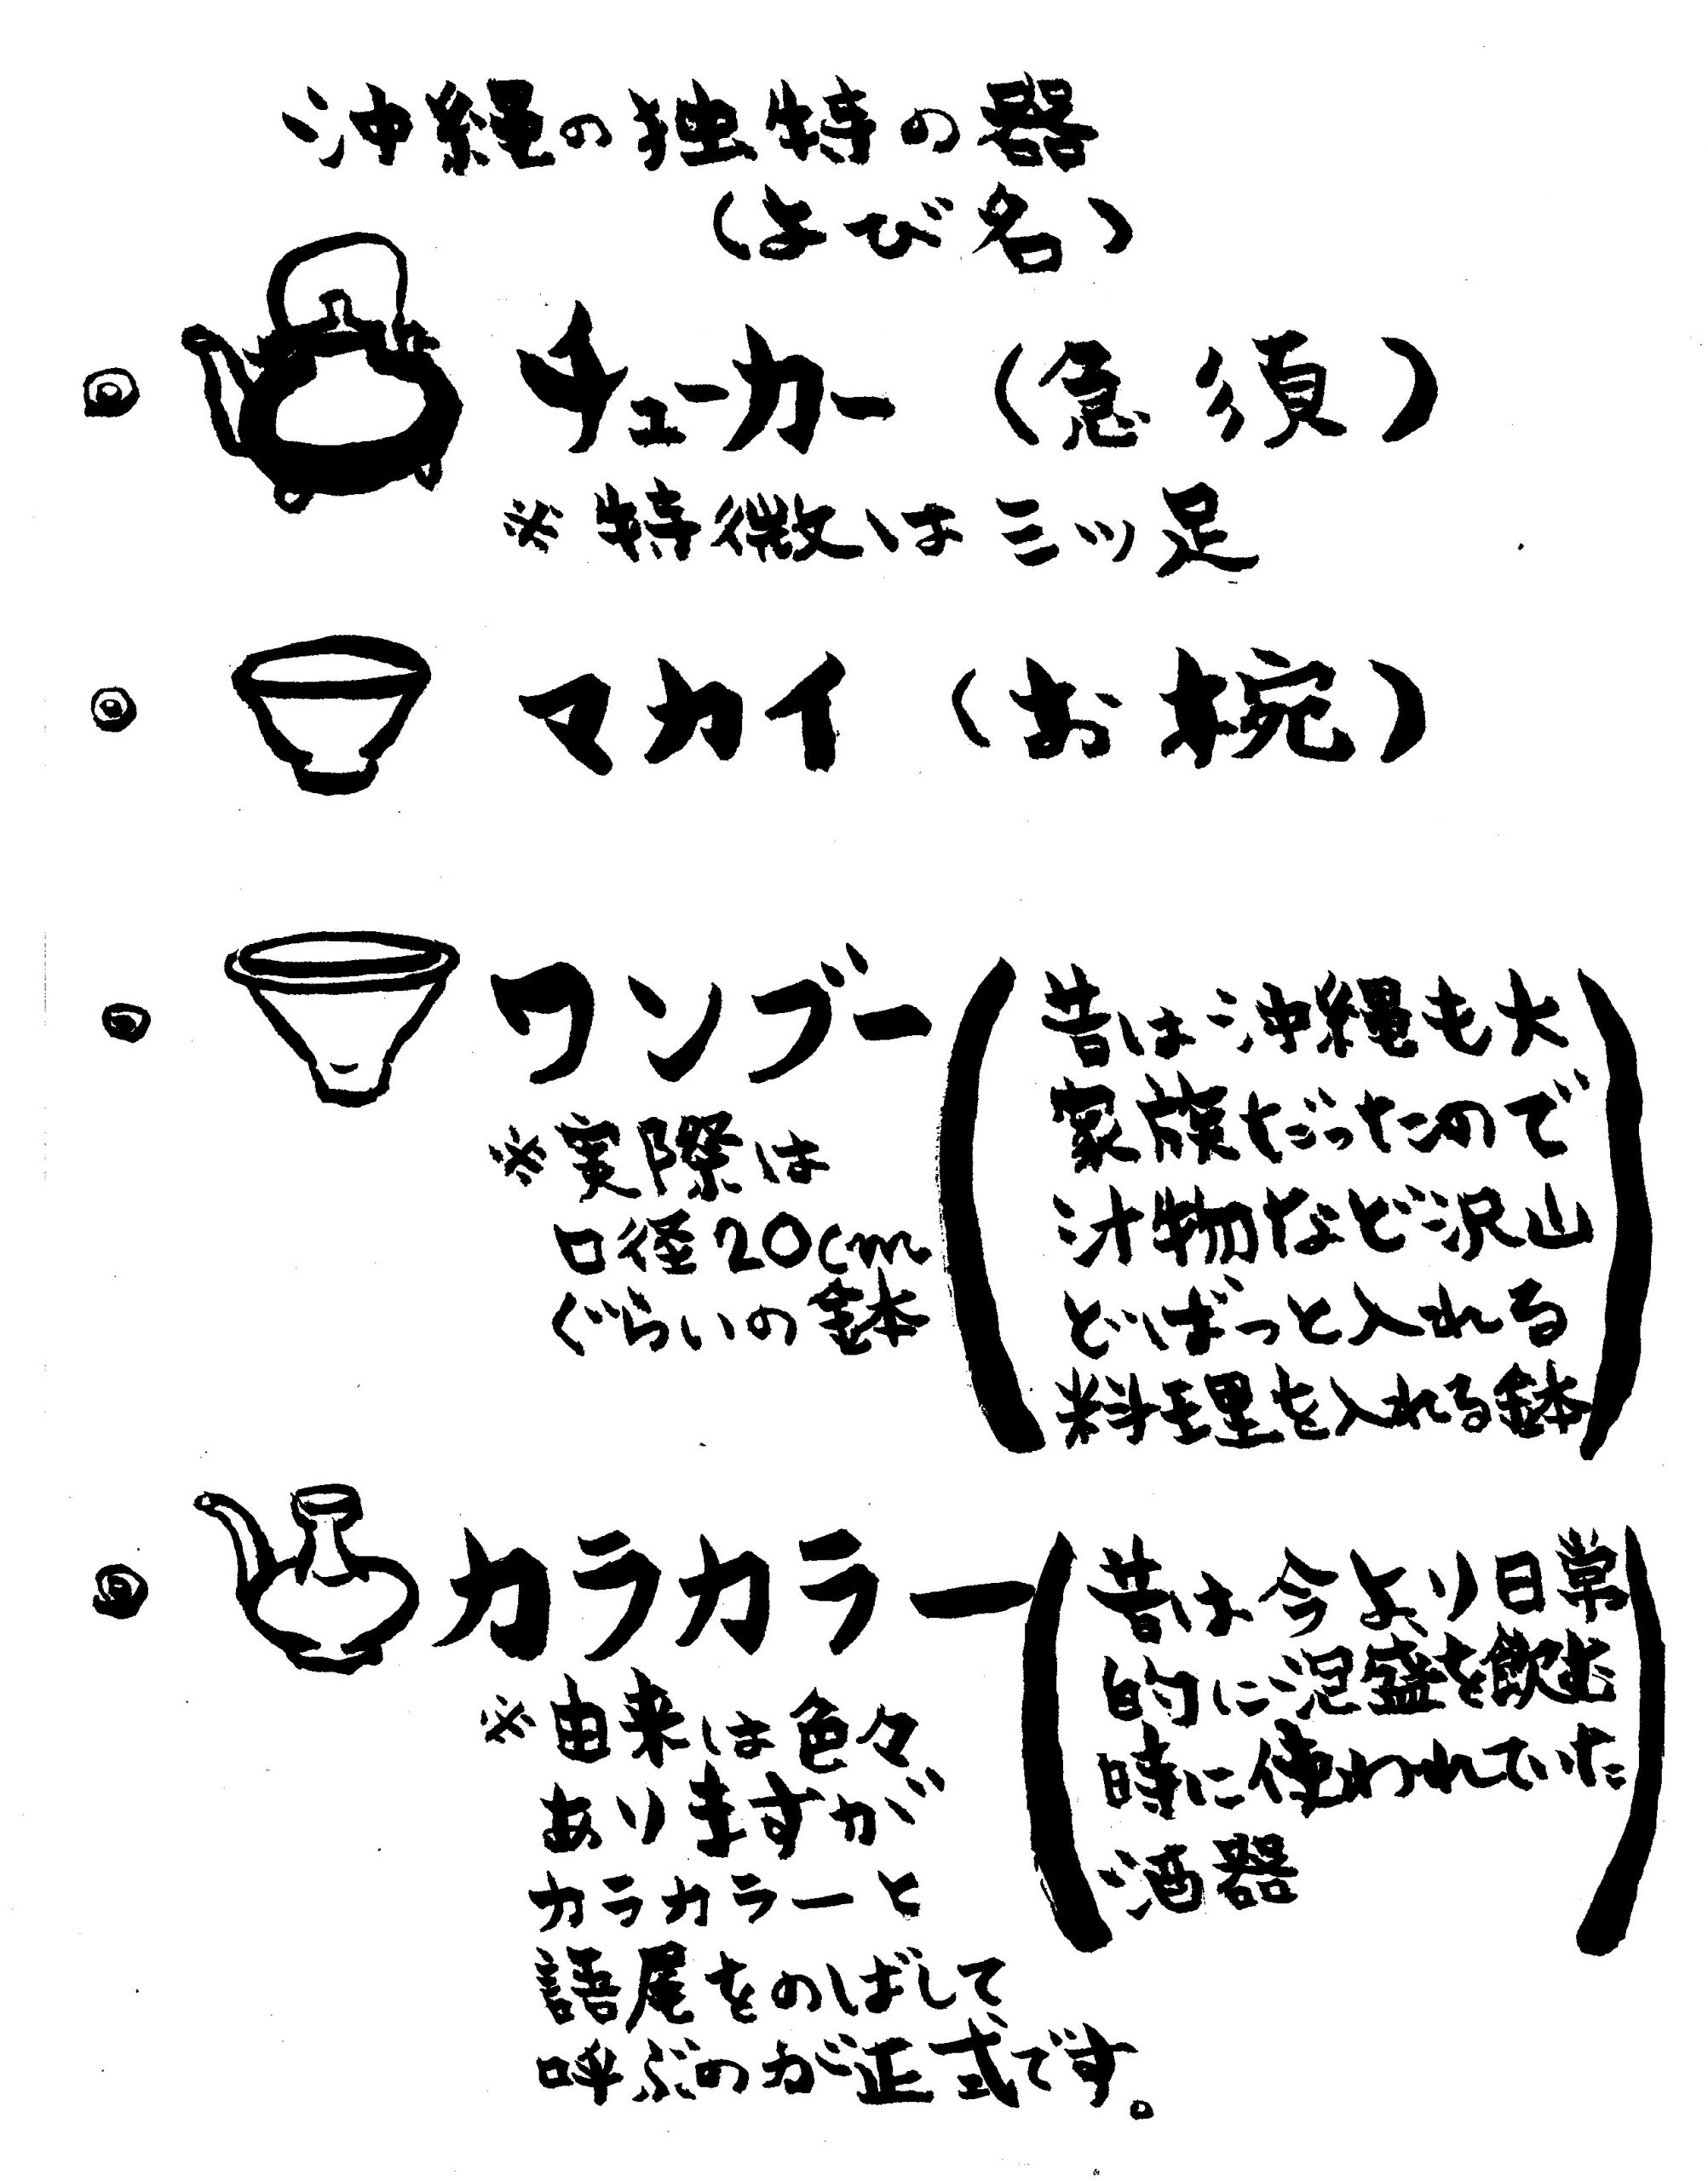 沖縄の独特の器
(よび名)
◎ チューカー (急須)
※特徴は三ツ足
◎ マカイ (お椀)
◎ ワンブー
※実際は
口径20cm
ぐらいの鉢
(昔は沖縄も大
家族だったので
汁物など沢山
どばっと入れる
料理を入れる鉢)
◎ カラカラー
※由来は色々
ありますが
カラカラーと
語尾をのばして
呼ぶのが正式です。
(昔は今より日常
的に泡盛を飲む
時に使われていた
酒器)